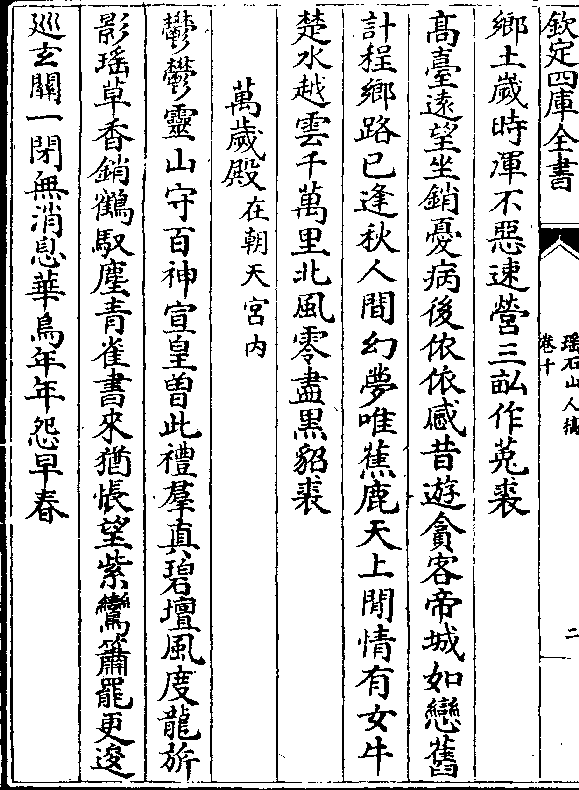 欽定四庫全書
瑤石山人稿
卷十
二
鄉土歲時渾不惡速營三畝作菟裘
髙臺遠望坐銷憂病後依依感昔遊貪客帝城如戀舊
計程鄉路已逢秋人間幻夢唯蕉鹿天上閒情有女牛
楚水越雲千萬里北風零盡黒貂裘
萬歲殿在朝天宫内
鬱鬱靈山守百神宣皇曽此禮羣真碧壇風度龍旂
影瑶草香銷鶴馭塵青雀書來猶悵望紫鸞簫罷更逡
廵玄關一閉無消息華鳥年年怨早春